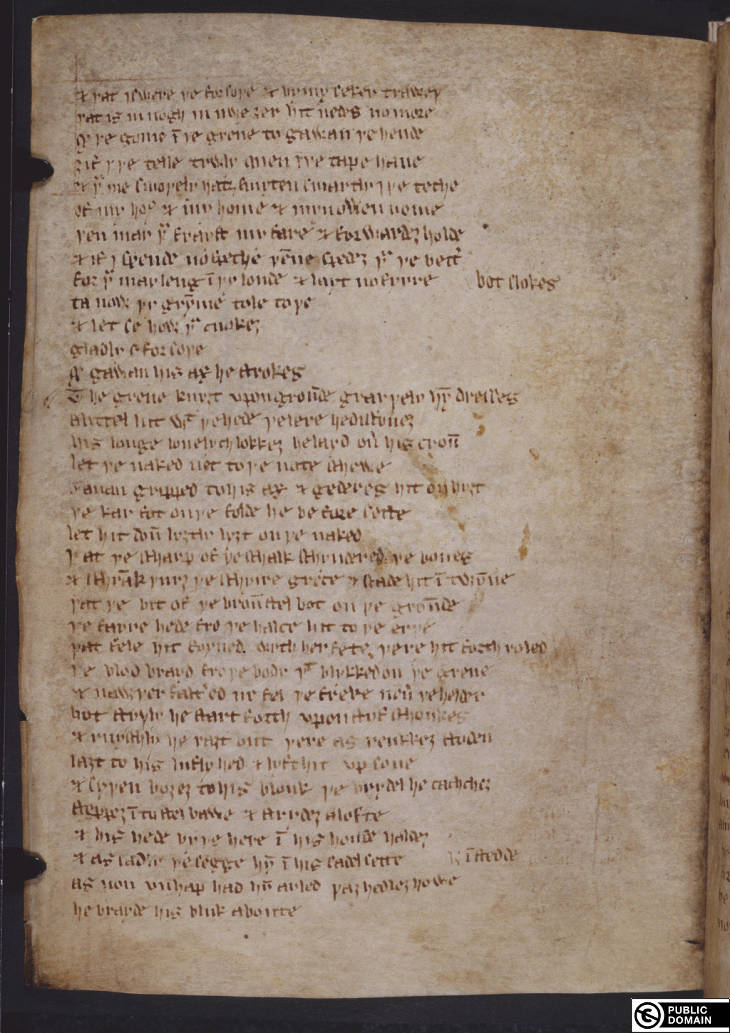 & þat I swere þe for soþe & by my seker traweþ
þat is in nogh in nwe ȝer hit nedes no more
qͦ þe gome ī þe grene to gawan þe hende
ȝif I þe telle trwly quen I þe tape haue
& þͧ me smoþely hatȝ smyten smartly I þe teche
of my hoꝰ & my home & myn owen nome
þen may þͧ frayst my fare & forwardeȝ holde
& if I spende no speche þēne spedeȝ þͧ þe bett̉
for þͧ may leng ī þy londe & layt no fyrre bot slokes
ta now þy grȳme tole to þe
& let se how þͧ cnokeȝ
gladly s̉ for soþe
qͦ gawan his ax he strokes
The grene knyȝt vpon groūde grayþely hȳ dresses
a littel lut wͭ þe hede þe lere he discoủeȝ
his longe louelych lokkeȝ he layd oủ his croū
let þe naked nec to þe note schewe
Gauan gripped to his ax & gederes hit on hyȝt
þe kay fot on þe folde he be fore sette
let hit doū lyȝtly lyȝt on þe naked
þat þe scharp of þe schalk schyndered þe bones
& schrāk þurȝ þe schyire grece & scade hit ī twȳne
þat þe bit of þe broū stel bot on þe groūde
þe fayre hede fro þe halce hit to þe erþe
þat fele hit foyned wyth her fete þere hit forth roled
þe blod brayd fro þe body þͭ blykked on þe grene
& nawþer falt̉ed ne fel þe freke neủ þe helder
bot styþly he start forth vpon styf schonkes
& runyschly he raȝt out þere as renkkeȝ stoden
laȝt to his lufly hed & lyft hit vp sone
& syþen boȝeȝ to his blonk þe brydel he cachcheȝ
steppeȝ ī to stel bawe & strydeȝ alofte
& his hede by þe here ī his honde haldeȝ
& as sadly þe segge hȳ ī his sadel sette ī stedde
as non vnhap had hȳ ayled þaȝ hedleȝ howe
he brayde his bluk aboute
PUBLIC
DOMAIN